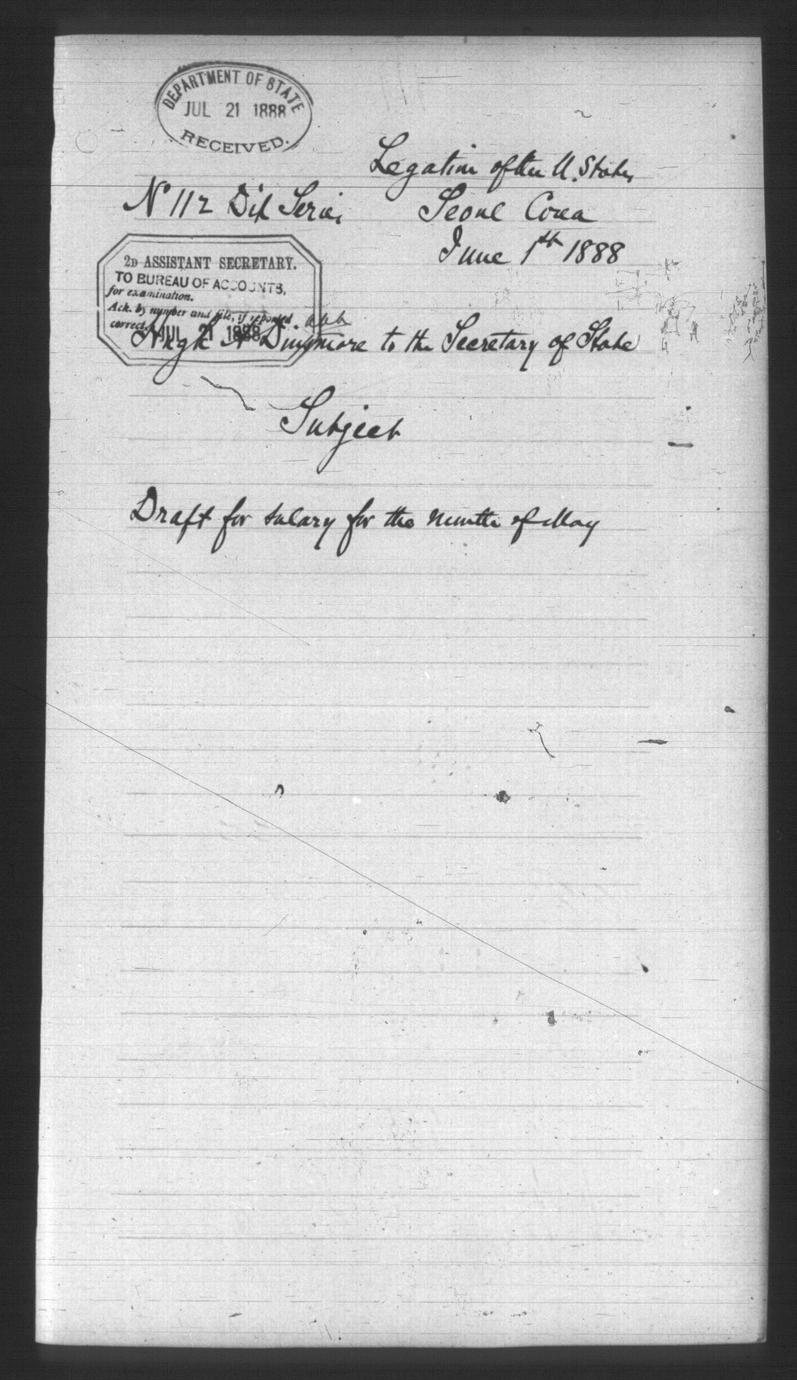 DEPARTMENT OF STATE
JUL 21 1888
RECEIVED.
Legation of the U. States
Nº 112 Dip Series
Seoul Corea
June 1st 1888
2D ASSISTANT SECRETARY.
TO BUREAU OF ACCOUNTS,
for examination.
Ack. by number and file, if reported
correct.
JUL 21 1888
Hugh A Dinsmore to the Secretary of State
Subject
Draft for salary for the month of May